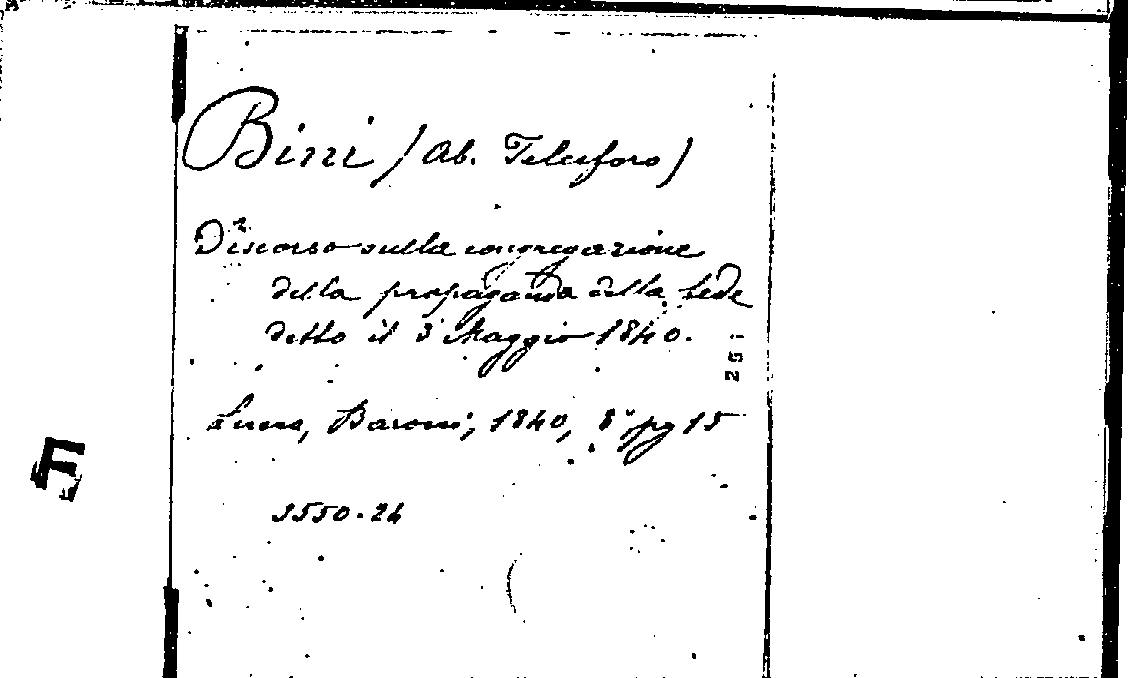 Bini (Ab. Telesforo)
Discorso sulla congregazione
della propaganda della fede
detto il 3 Maggio 1840.
251
Lucca, Baroni, 1840, 8° pg 15
1550.24
F